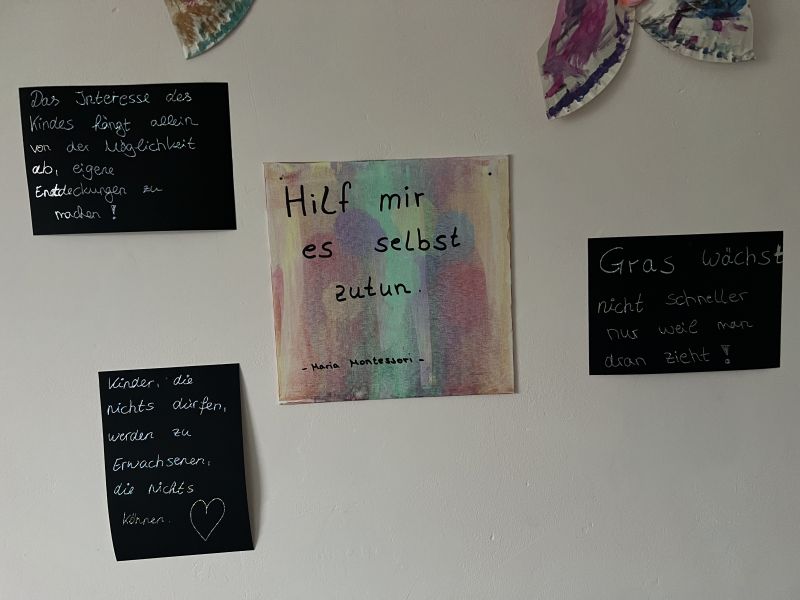 Das Interesse des
Kindes hängt allein
von der Möglichkeit
ab, eigene
Entdeckungen zu
machen!
Hilf mir
es selbst
zutun.
- Maria Montessori -
Gras wächst
nicht schneller
nur weil man
dran zieht!
Kinder, die
nichts dürfen,
werden zu
Erwachsenen,
die nichts
können.